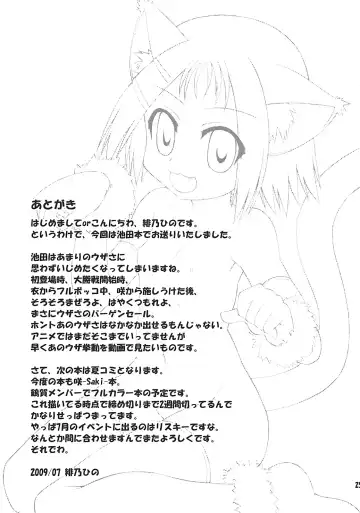 あとがき
はじめましてorこんにちわ、緋乃ひのです。
というわけで、今回は池田本でお送りいたしました。
池田はあまりのウザさに
思わずいじめたくなってしまいますね。
初登場時、大将戦開始時、
衣からフルボッコ中、咲から施しうけた後、
そろそろまぜろよ、はやくつもれよ、
まさにウザさのバーゲンセール。
ホントあのウザさはなかなか出せるもんじゃない。
アニメではまだそこまでいってませんが
早くあのウザ挙動を動画で見たいものです。
さて、次の本は夏コミとなります。
今度の本も咲-Saki-本。
鶴賀メンバーでフルカラー本の予定です。
これ描いてる時点で締め切りまで2週間切ってるんで
かなりせっぱつまってます。
やっぱ7月のイベントに出るのはリスキーですな。
なんとか間に合わせますんでまたよろしくです。
それでわ。
2009/07 緋乃ひの